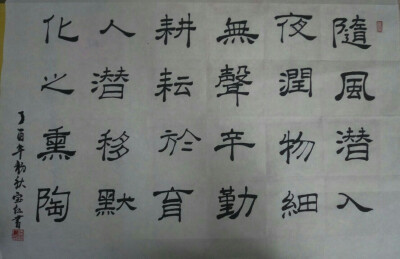 隨風潜入
夜潤物細
無聲辛勤
耕耘於育
人潜移默
化之熏陶
丁酉年初秋